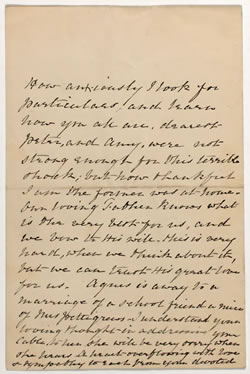 How anxiously I look for
particulars! and learn
how you all are, dearest
Peter, and Amy, were not
strong enough for this terrible
shock; but how thankful
I am the former was at home.
Our loving Father knows what
is the very best for us, and
we bow to His will. this is very
hard, when we think about it,
but we can trust His great love
for us. Agnes is away to a
marriage of a school friend a niece
of Mrs Pettigrews - I understood your
loving thought in addressing your
Cable, to her she will be very sorry when
she hears. A heart overflowing with love
& sympathy to each from your devoted